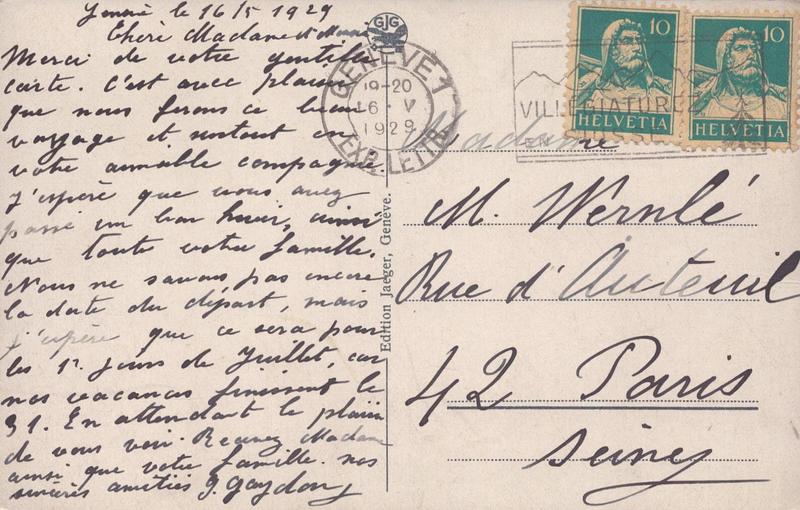 Genève le 16/5 1929
Chère Madame et
Merci de votre gentille
carte. C'est avec plaisir
que nous ferons ce beau
voyage et surtout en
votre aimable compagnie.
J'espère que vous avez
passé un bon hiver, ainsi
que toute votre famille.
Nous ne savons pas encore
la date du départ, mais
j'espère que ce sera pour
les 1r jours de Juillet, car
nos vacances finissent le
31. En attendant le plaisir
de vous voir. Recevez Madame
ainsi que votre famille nos
sincères amitiés J. Gaydon
GJG
GENÈVE 1
19-20
16 V
1929
EXP. LETTR.
VILLÉGIATUREZ
EN
10
HELVETIA
10
HELVETIA
Edition Jaeger, Genève.
Madame
M. Wernlé
Rue d'Auteuil
42 Paris
Seine